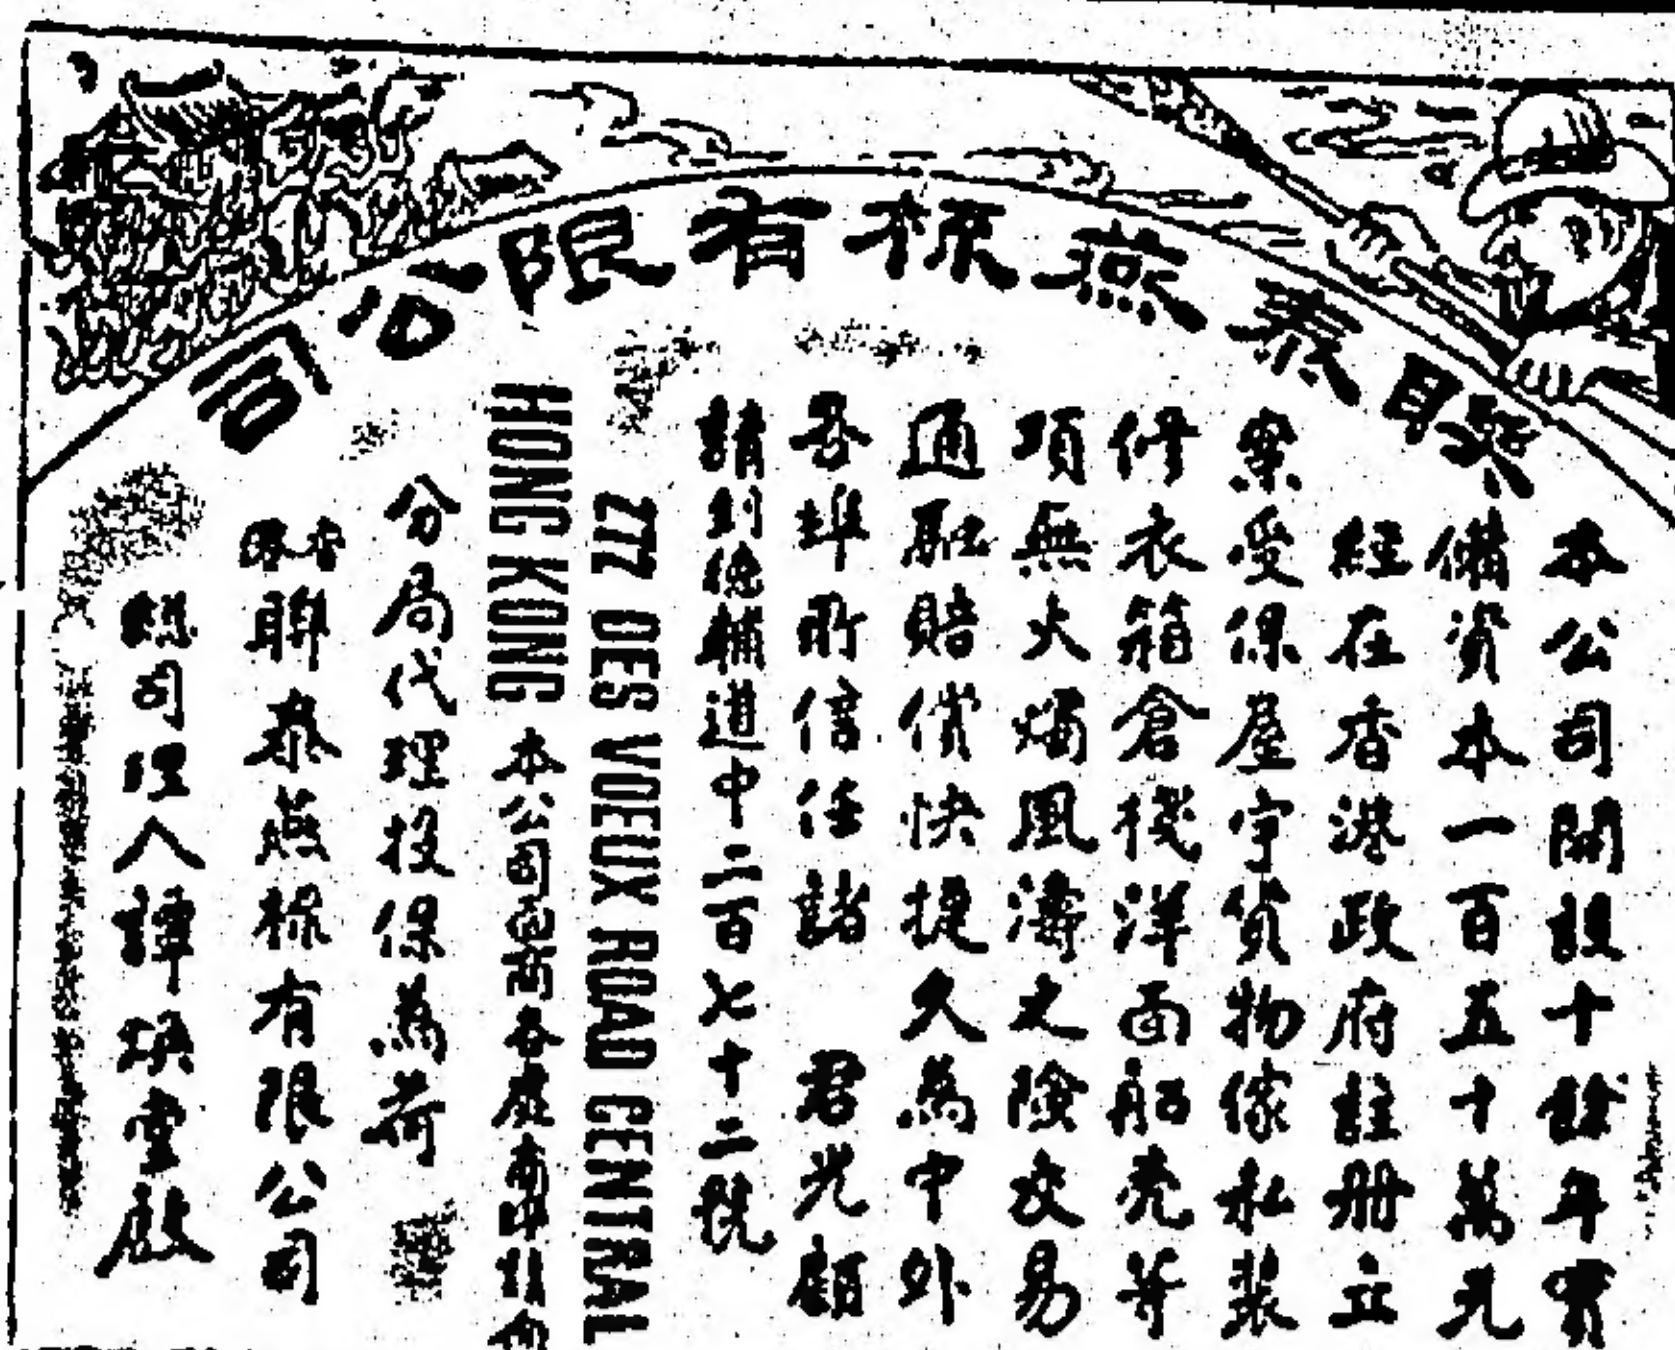 聯泰燕梳有限公司
本公司開設十餘年實
備資本一百五十萬元
經在香港政府註册立
案受保屋宇貨物傢私裝
修衣箱倉棧洋面船壳等
項無火燭風濤之險交易
通融賠償快捷久為中外
各埠所信任諸 君光顧
請到德輔道中二百七十二號
277 DES VOEUX ROAD CENTRAL
HONG KONG 本公司 各處
分局代理投保為荷
香港聯泰燕梳有限公司
總司理人譚煥堂啟